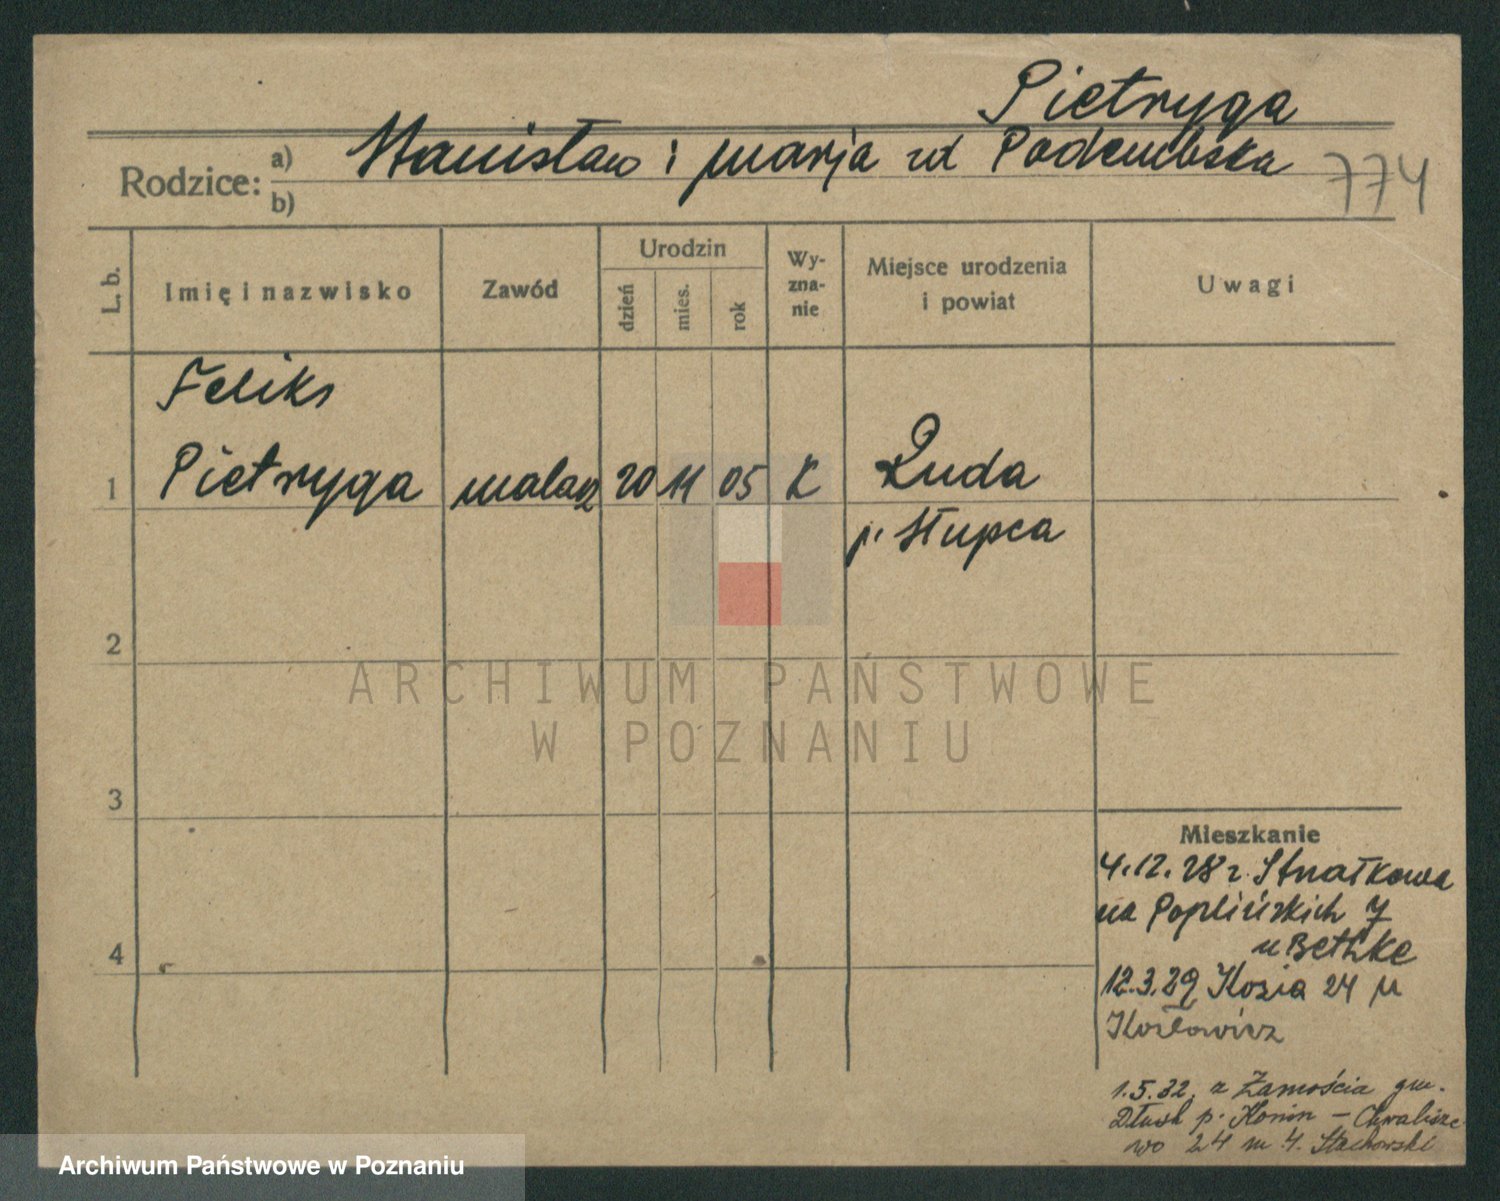 Pietryga
Rodzice: a) Stanisław i Marja zd
b)
774
L. b.
Imię i nazwisko
Zawód
Urodzin
dzień
mies.
rok
Wy-
zna-
nie
Miejsce urodzenia
i powiat
Uwagi
Feliks
1 Pietryga malarz 20 11 05 K
p. Słupca
2
3
4
Mieszkanie
4.12.28 r. Strzałkowa
na Poplińskich 7
u Bethke
12.3.29 Kozia 24 u
1.5.32. z Zamościa gm.
p. Konin - Chwalisze
wo 24 m 4. Stachowski
ARCHIWUM PAŃSTWOWE
W POZNANIU
Archiwum Państwowe w Poznaniu